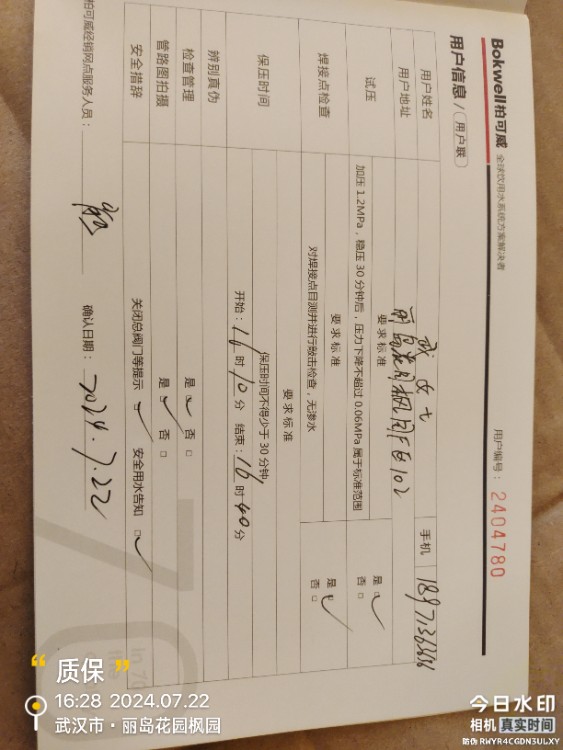 Bokwell柏可威 全球饮用水系统方案解决者
用户信息 / 用户联
用户编号: 2404780
用户姓名 武女士 手机
用户地址 丽岛花园枫园F自102
试压 要求标准
加压 1.2MPa,稳压 30 分钟后,压力下降不超过 0.06MPa 属于标准范围 是 否
焊接点检查 要求标准
对焊接点目测并进行敲击检查,无渗水 是 否
保压时间 要求标准
保压时间不得少于 30 分钟
开始:16时10分 结束:16时40分
辨别真伪
检查管理 是 否
管路图拍摄 是 否
安全措辞 关闭总阀门等提示 安全用水告知
柏可威经销网点服务人员:
确认日期: 2024.7.22
“质保”
16:28 2024.07.22
武汉市·丽岛花园枫园
今日水印
相机 真实时间
防伪 RWYR4CGDN3ULXY